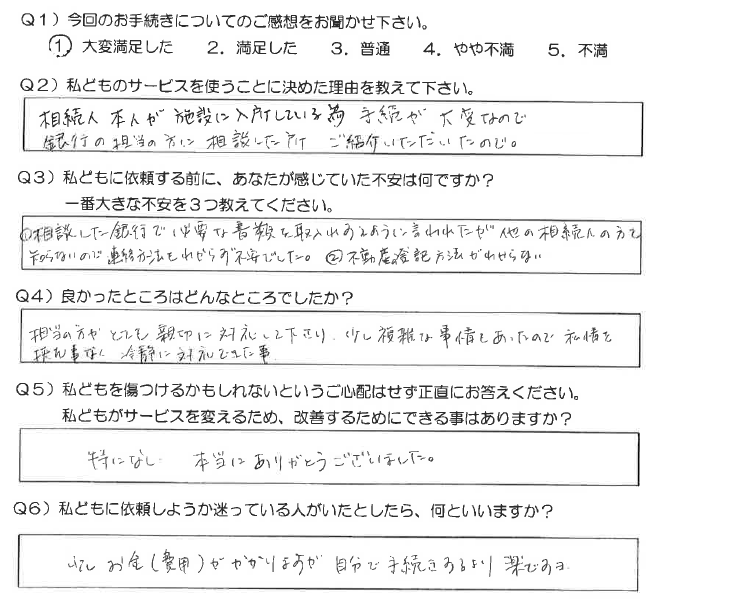 Q1）今回のお手続きについてのご感想をお聞かせ下さい。
① 大変満足した　2．満足した　3．普通　4．やや不満　5．不満
Q2）私どものサービスを使うことに決めた理由を教えて下さい。
相続人 本人が 施設に入所している為 手続が 大変なので
銀行の担当の方に 相談した所 ご紹介いただいたので。
Q3）私どもに依頼する前に、あなたが感じていた不安は何ですか？
一番大きな不安を3つ教えてください。
①相談した銀行で必要な書類を取入れるように言われたが他の相続人の方を
知らないので連絡方法もわからず不安でした。②不動産登記方法がわからない
Q4）良かったところはどんなところでしたか？
担当の方がとても 親切に対応して下さり、少し複雑な事情もあったので 私情を
挟む事なく 冷静に対応できた事
Q5）私どもを傷つけるかもしれないというご心配はせず正直にお答えください。
私どもがサービスを変えるため、改善するためにできる事はありますか？
特になし 本当にありがとうございました。
Q6）私どもに依頼しようか迷っている人がいたとしたら、何といいますか？
少し お金(費用)がかかりますが 自分で手続きするより 楽ですヨ